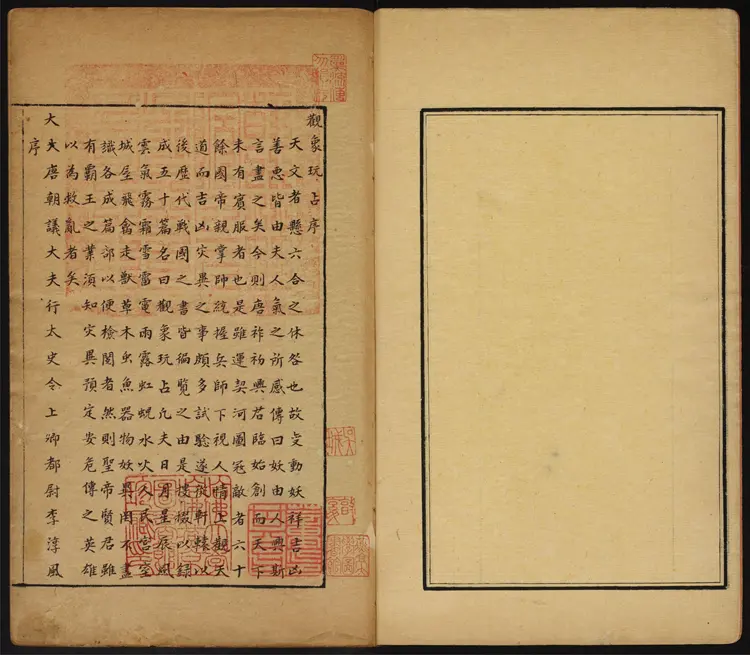 觀象玩占序
天文者懸六合之休咎也故變動妖祥吉凶
善惡皆由夫人氣之所感傳曰妖由人興斯
言盡之矣今則唐祚初興君臨始創而天下
未有賓服者也是雖運契河圖冦敵者六十
餘國帝親掌師統握兵師下視人情上觀天
道而吉凶灾異之事頗多試驗遂從軒轅以
後歷代戰國之書皆徧覽之由是摟綴以錄
成五十篇名曰觀象玩占凡夫日月星辰風
雲氣霧霜雪雷電雨露虹蜺水火人民宮室
城屋飛禽走獸草木虫魚器物妖異罔不盡
識各成篇部以便檢閱者然則聖帝賢君雖
有霸王之業須知灾異預定安危傳之英雄
以為救亂者矣
大大唐朝議大夫行太史令上御都尉李淳風
序